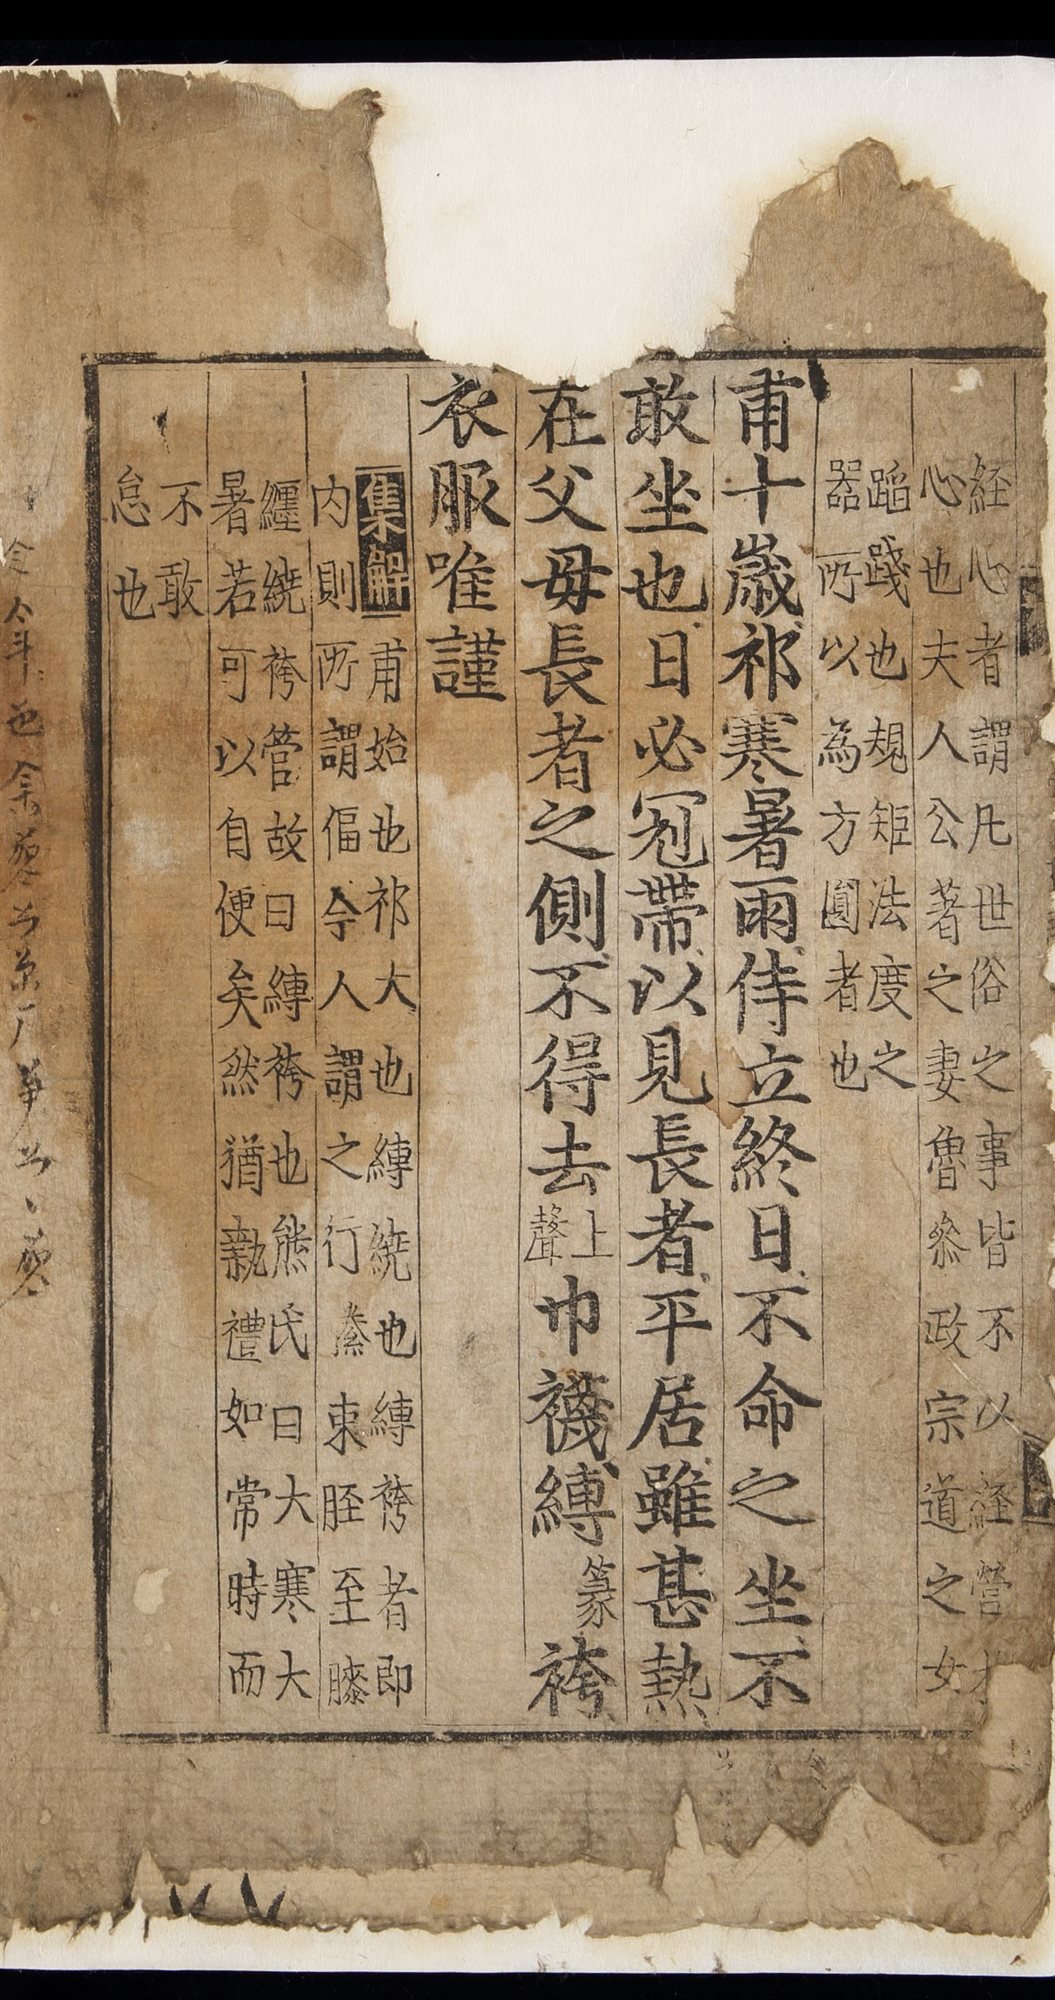 経心者謂凡世俗之事皆不以経營
心也夫人公著之妻魯叅政宗道之女
蹈踐也規矩法度之
器所以為方圓者也
甫十歲祁寒暑雨侍立終日不命之坐不
敢坐也日必冠帶以見長者平居雖甚熱
在父毋長者之側不得去上聲巾襪縛篆袴
衣服唯謹
集解甫始也祁大也縛繞也縛袴者即
內則所謂偪今人謂之行縢束脛至膝
纒繞袴管故曰縛袴也熊氏曰大寒大
暑若可以自便矣然猶執禮如常時而
不敢
怠也